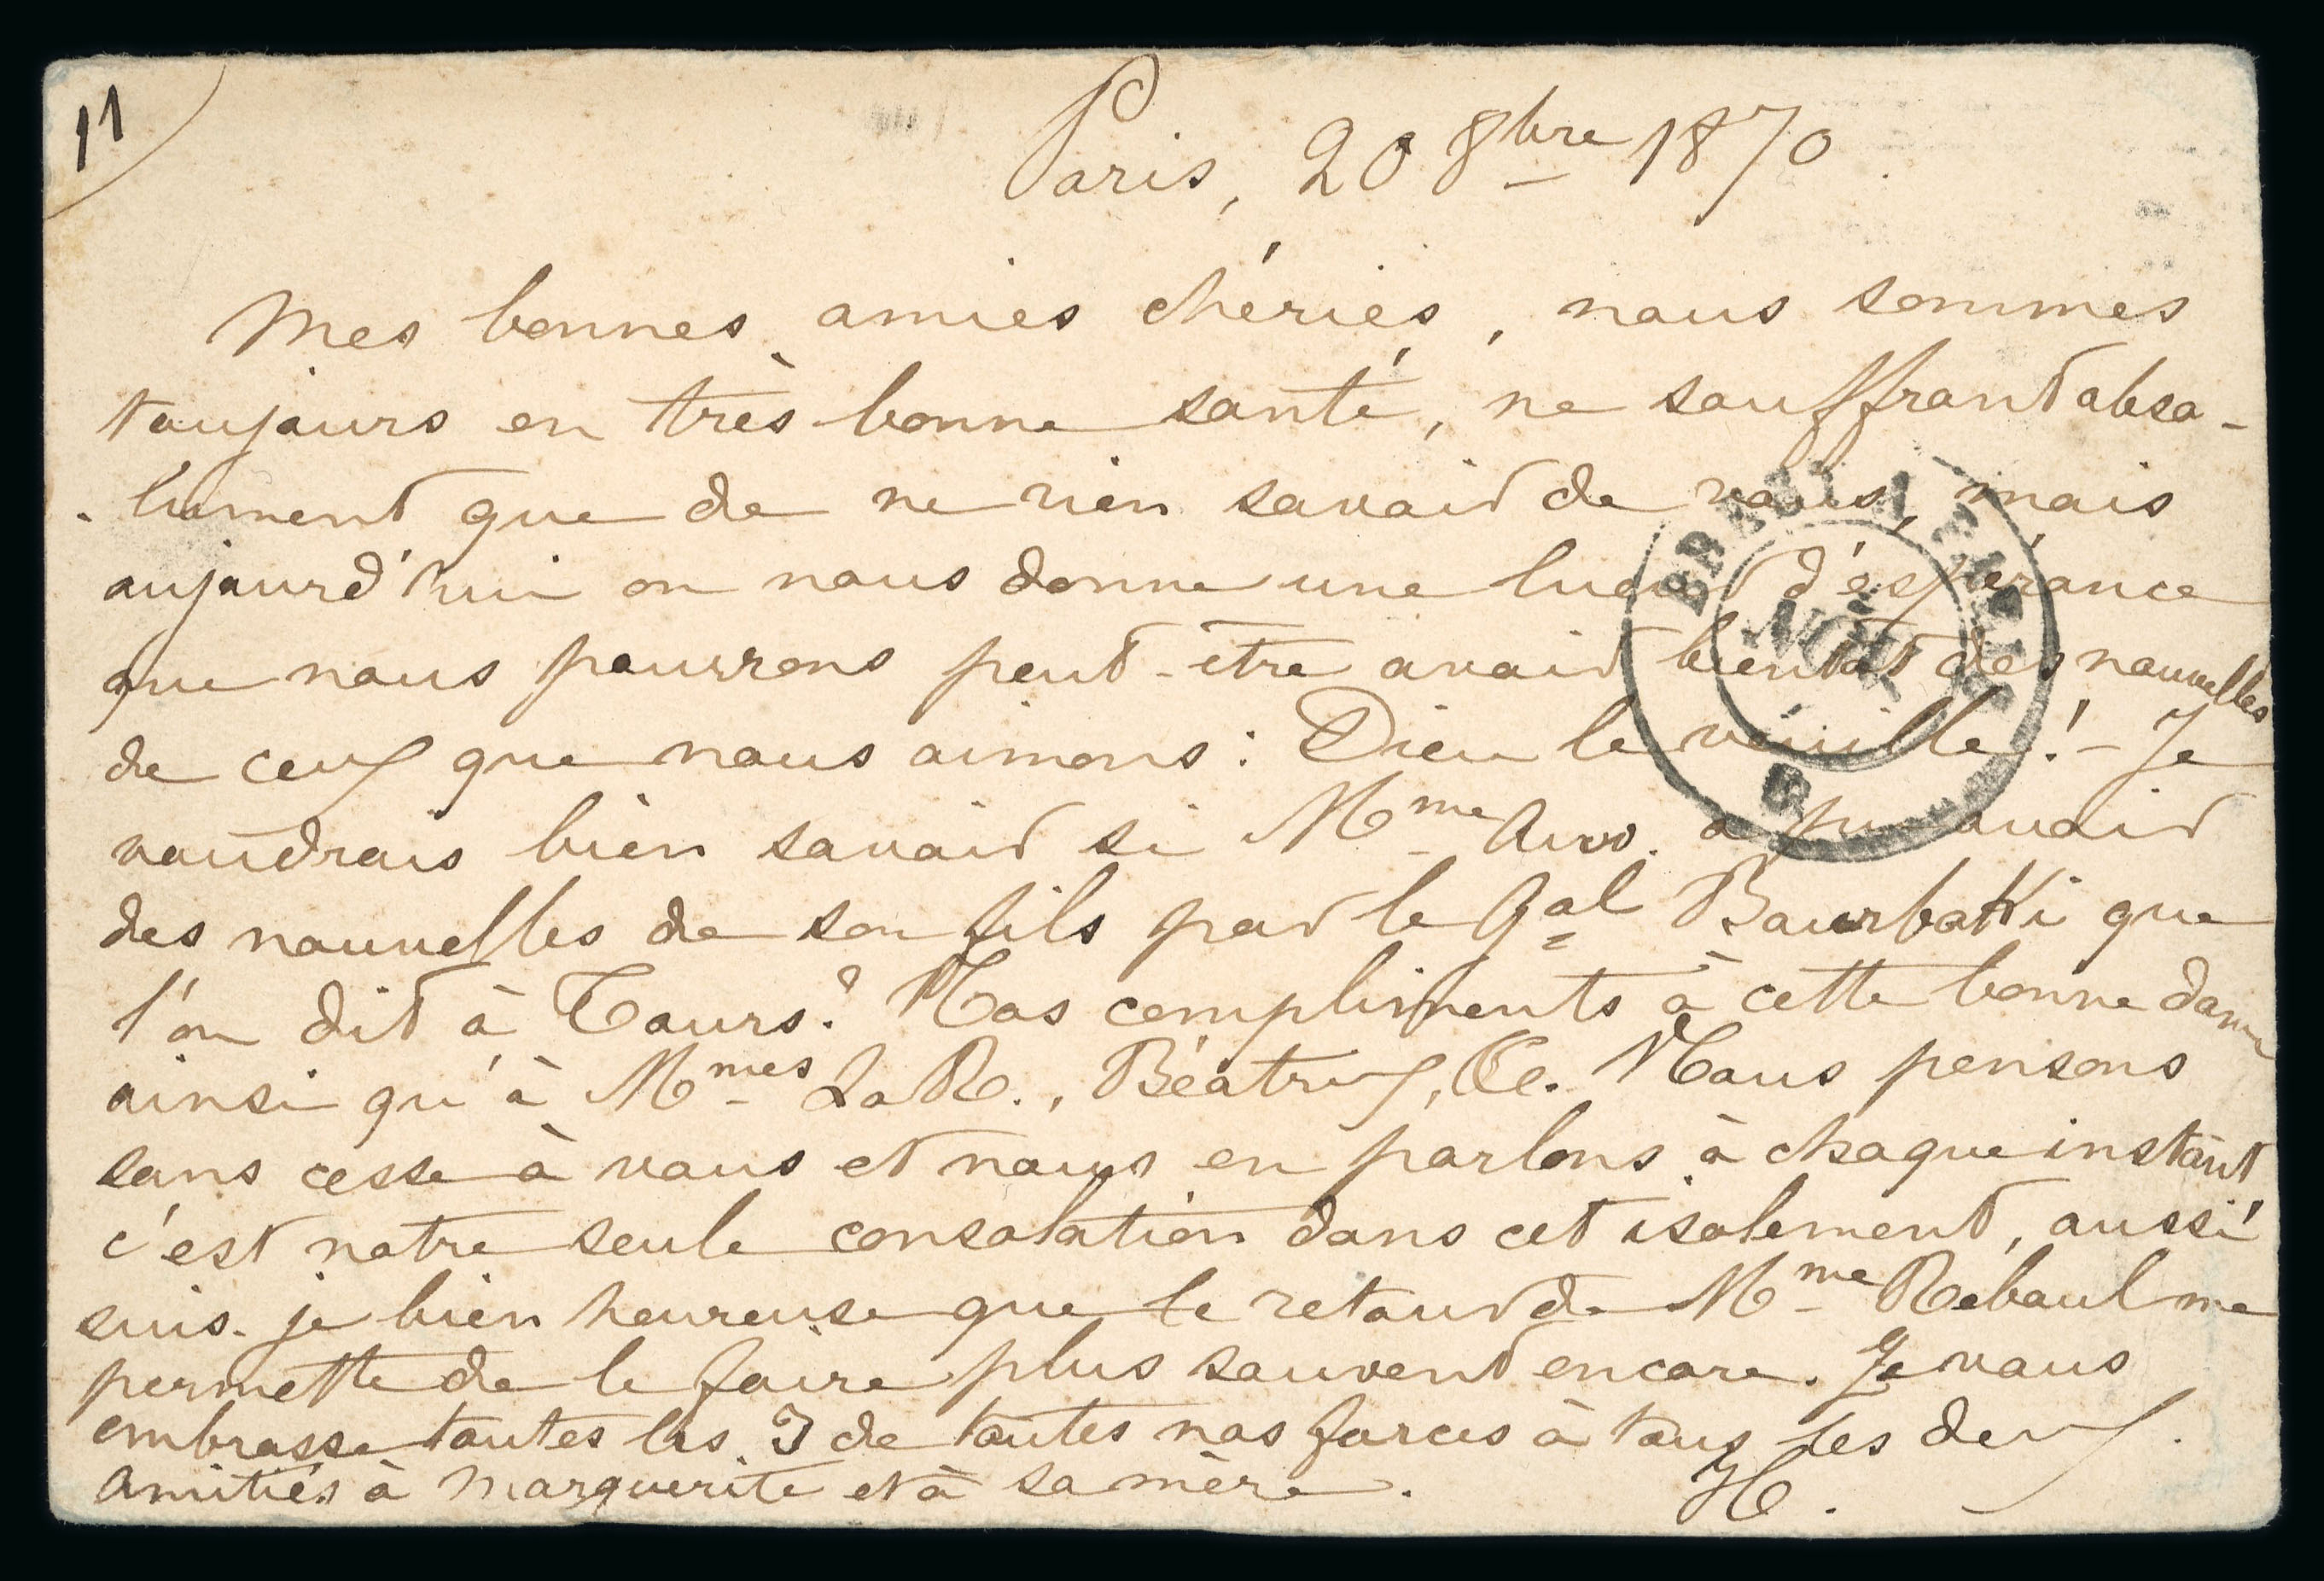 11
Paris, 20 8bre 1870.
Mes bonnes amies chéries, nous sommes
toujours en très bonne santé, ne souffrant abso-
-lument que de ne rien savoir de vous, mais
aujourd'hui on nous donne une lueur d'espérance
que nous pourrons peut-être avoir bientôt des nouvelles
de ceux que nous aimons : Dieu le veuille ! - Je
voudrais bien savoir si Mme a pu avoir
des nouvelles de son fils par le Gal Bourbakki que
l'on dit à Tours ? Nos compliments à cette bonne dame
ainsi qu'à Mmes LaR., Béatrix, &c. Nous pensons
sans cesse à vous et nous en parlons à chaque instant
c'est notre seule consolation dans cet isolement, aussi
suis-je bien heureuse que le retour de Mme Reboul me
permette de le faire plus souvent encore. Je vous
embrasse toutes les 3 de toutes nos forces à tous les deux.
Amitiés à Marguerite et à sa mère. H.